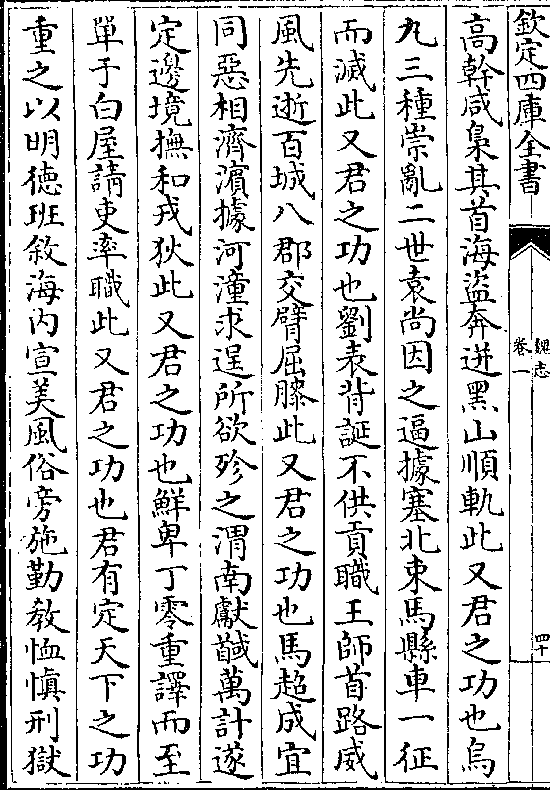 欽定四庫全書
魏志
卷一
四十
高幹咸梟其首海盜奔迸黑山順軌此又君之功也烏
九三種崇亂二世袁尚因之逼據塞北束馬縣車一征
而滅此又君之功也劉表背誕不供貢職王師首路威
風先逝百城八郡交臂屈膝此又君之功也馬超成宜
同惡相濟濱據河潼求逞所欲殄之渭南獻馘萬計遂
定邊境撫和戎狄此又君之功也鮮卑丁零重譯而至
單于白屋請吏率職此又君之功也君有定天下之功
重之以明徳班敘海内宣美風俗旁施勤教恤慎刑獄